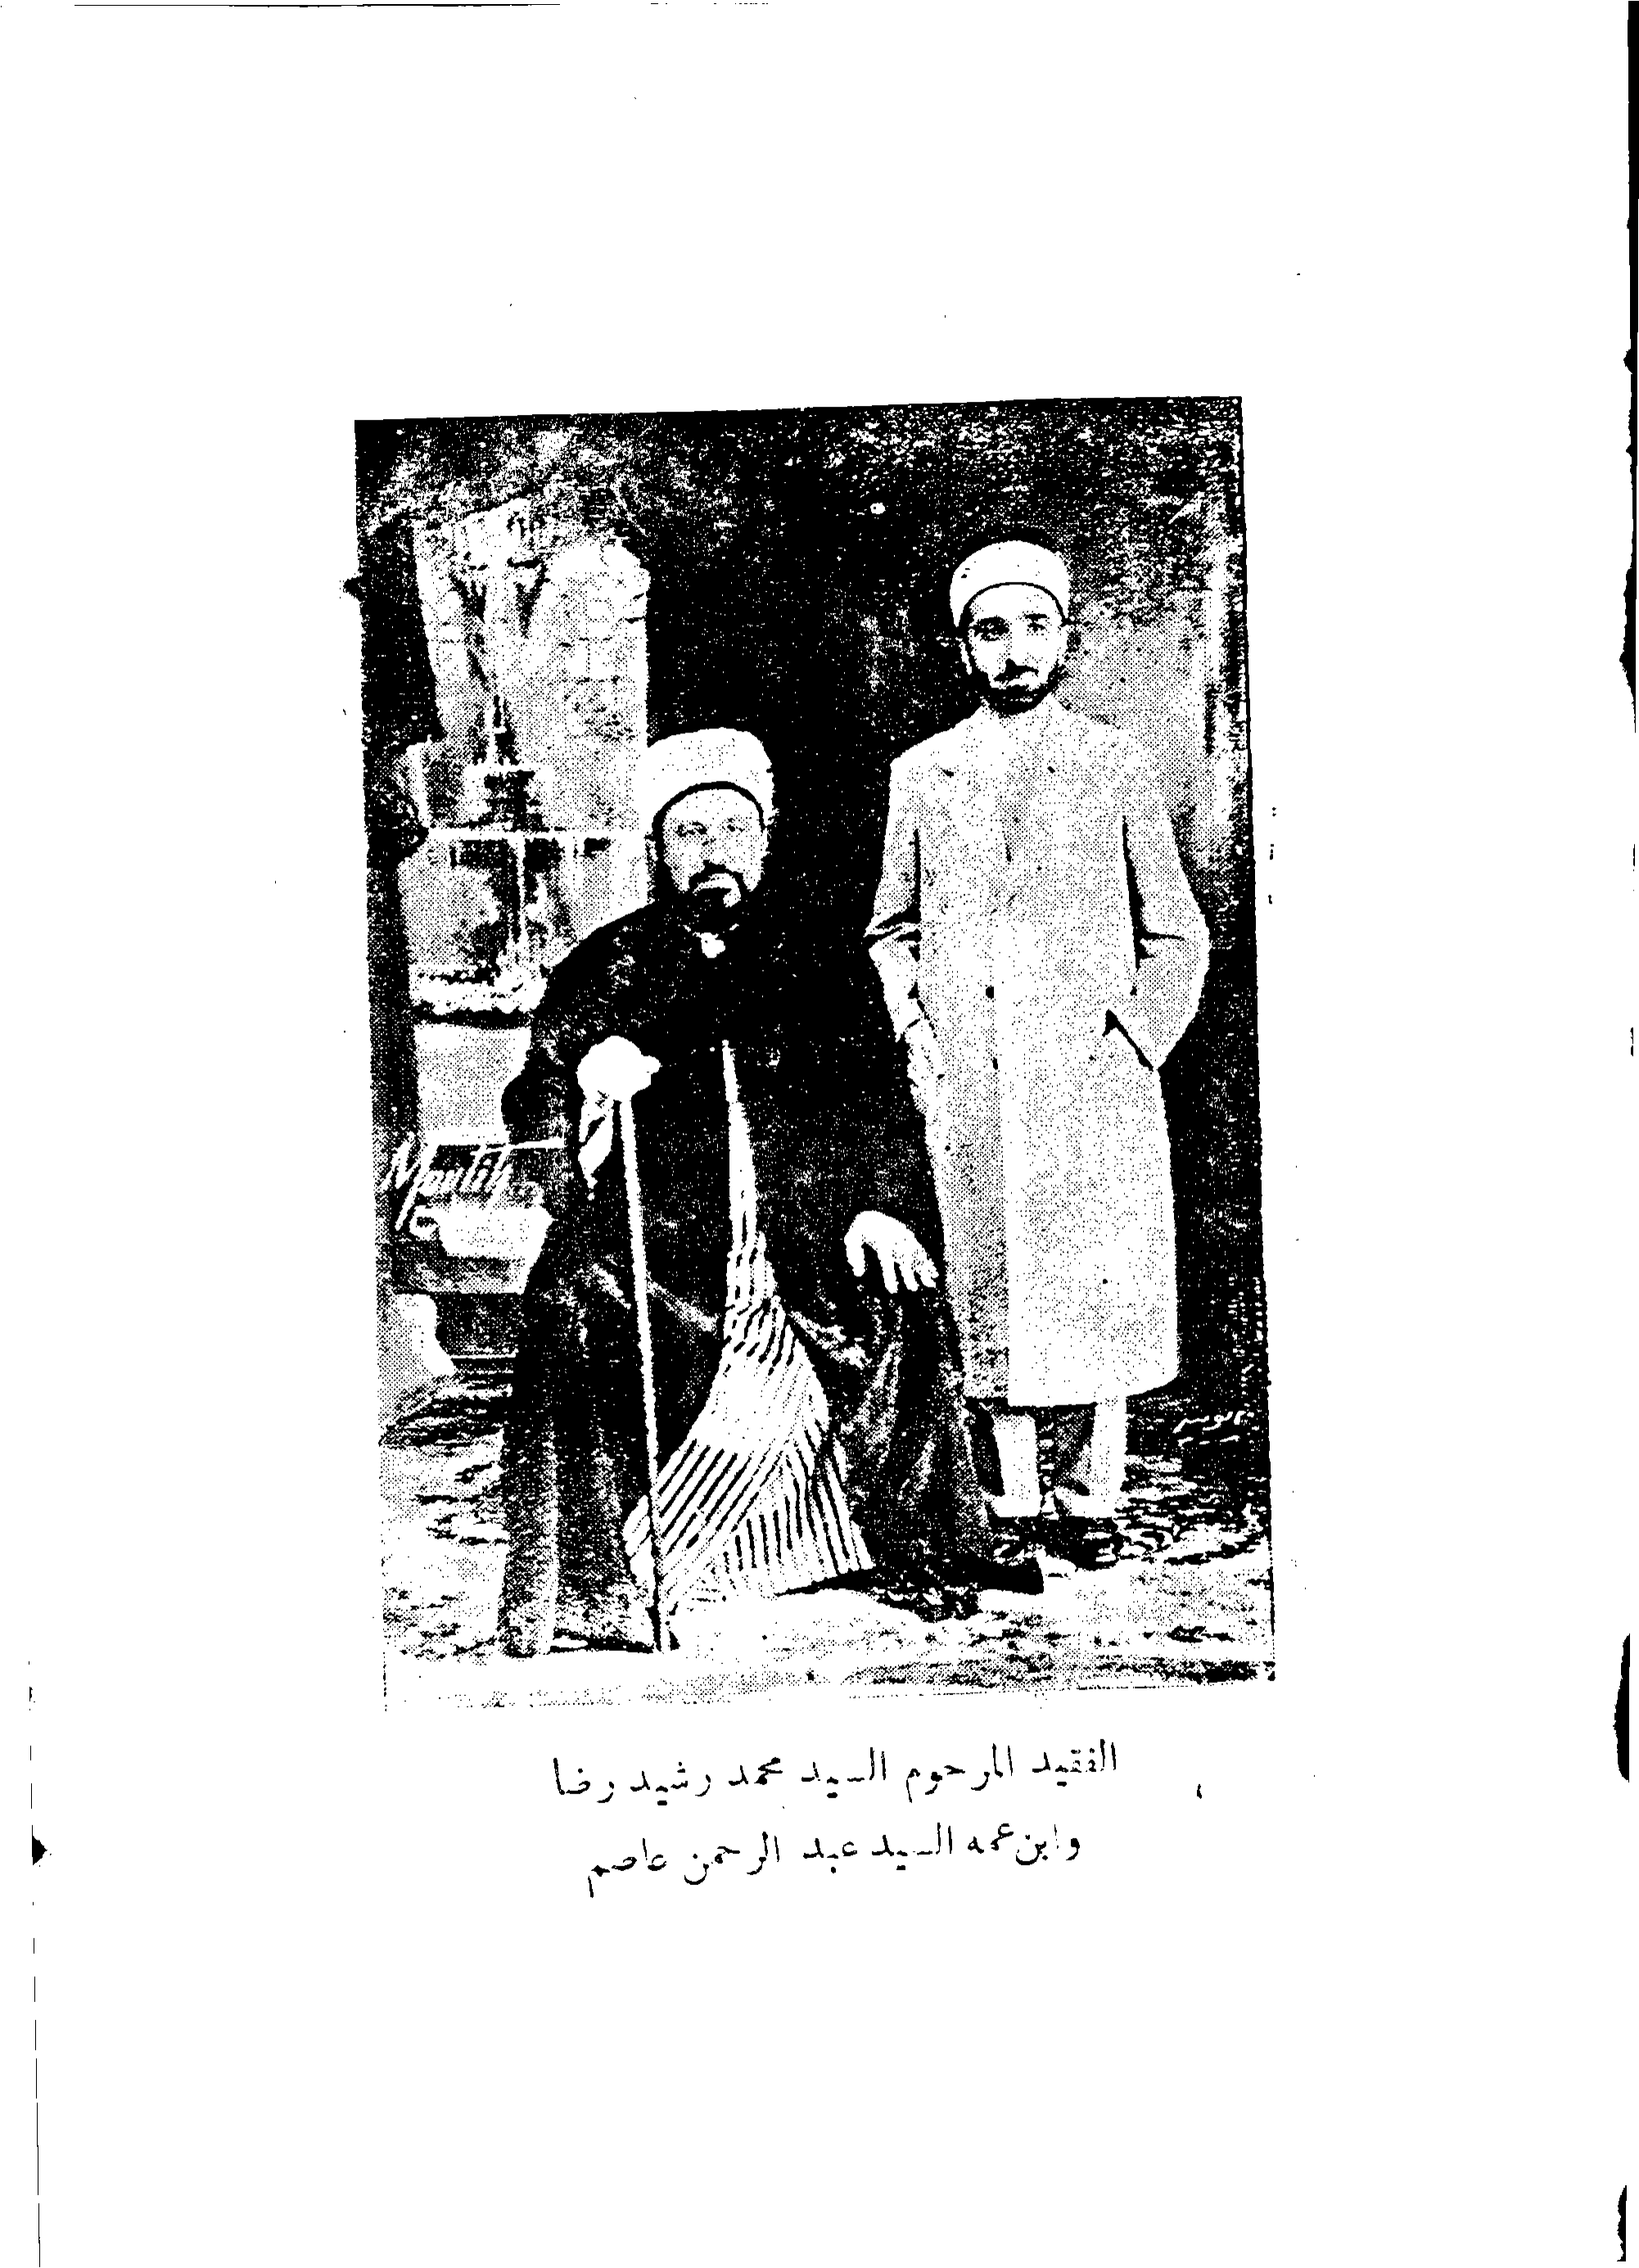 الفقيد المرحوم السيد محمد رشيد رضا
وابن عمه السيد عبد الرحمن عاصم